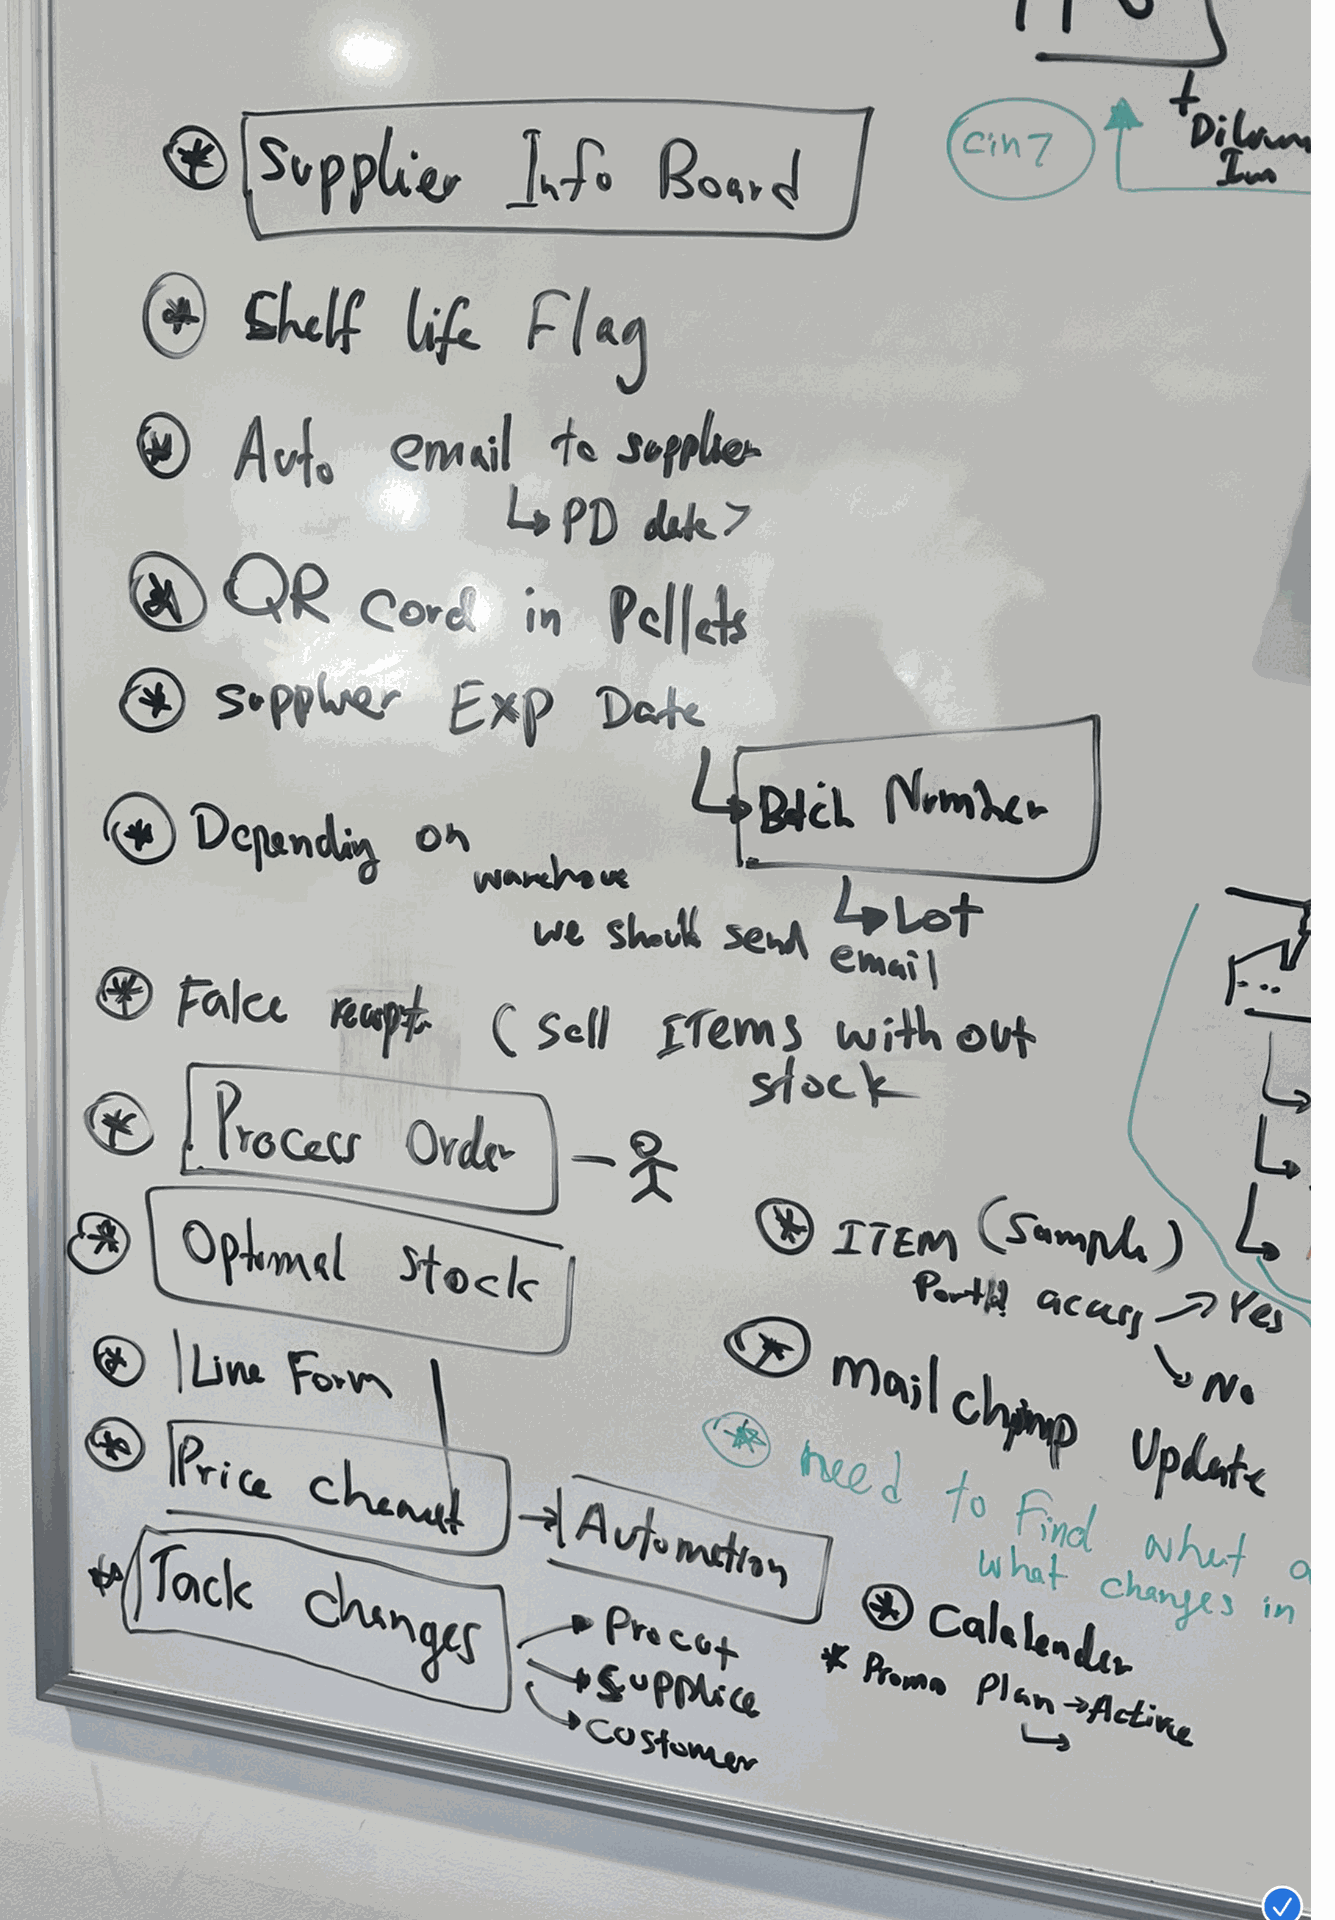 Supplier Info Board
cin7
Shelf life Flag
Auto email to supplier
PD date >
QR Cord in Pallets
Supplier Exp Date
Batch Number
Lot
Depending on
warehouse
we should send
email
Fake
(Sell ITEMS with out
stock
Process Order
Optimal stock
Line Form
Price
Automation
Tack changes
Procut
Supplice
Customer
ITEM (Sample)
Portal
Yes
No
Mailchimp Update
need to Find what
what changes in
Calalender
* Promo Plan → Active